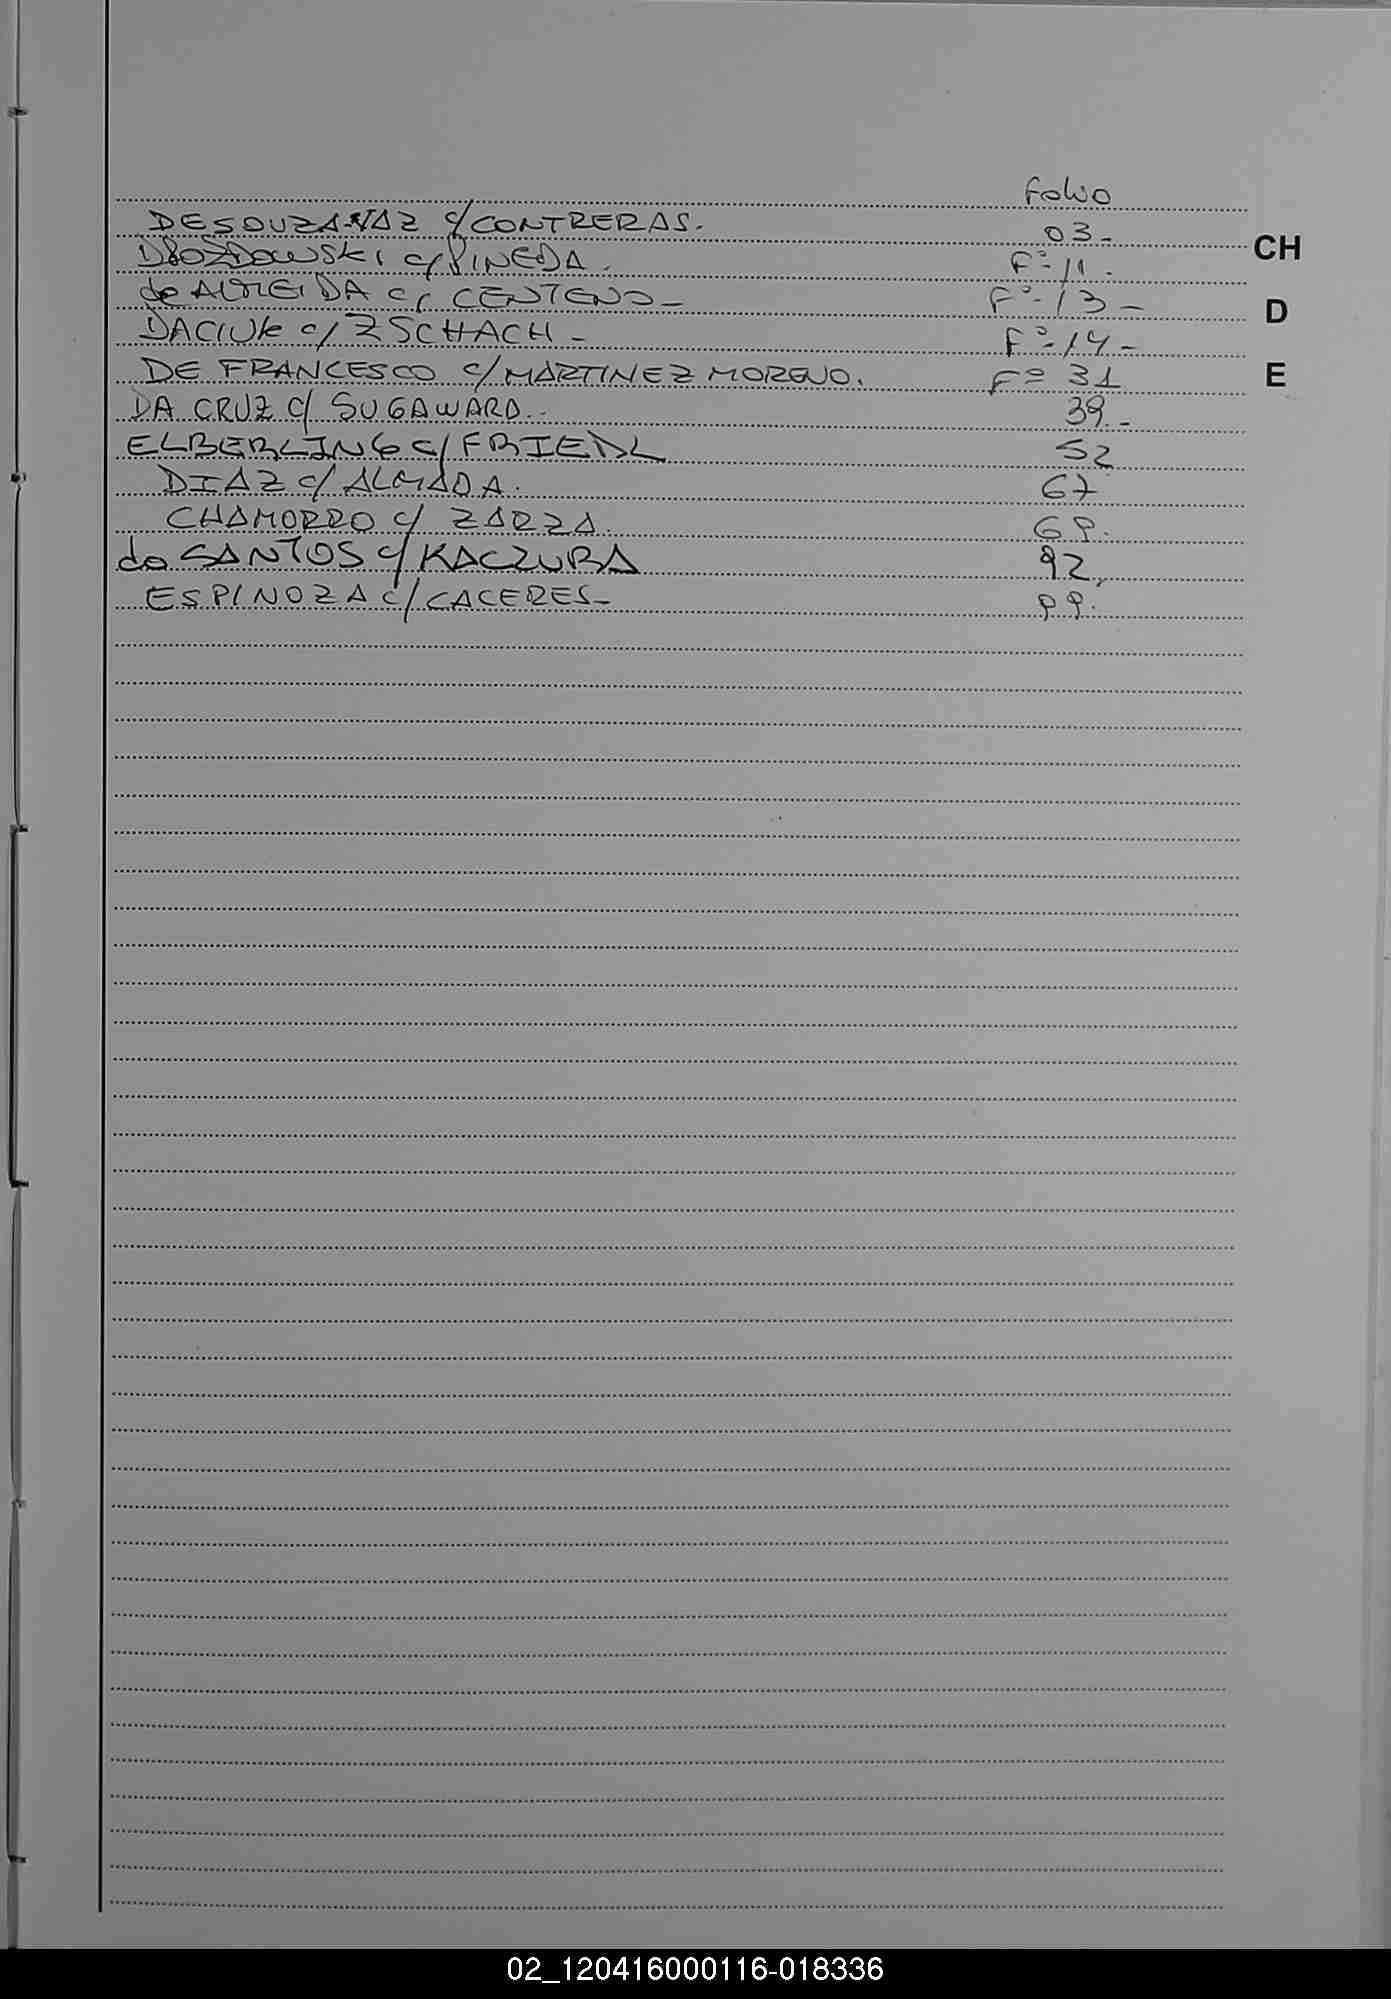 Folio
DESOUZA VAZ c/ CONTRERAS. 03.-
DROZDOWSKI c/ PINEDA. Fº 11.
CH
de ALMEIDA c/ CENTENO- Fº 13-
D
DACIUK c/ ZSCHACH- Fº 14-
DE FRANCESCO c/ MARTINEZ MORENO. Fº 31
E
DA CRUZ c/ SUGAWARA. 39.-
ELBERLING c/ FRIEDL 52
DIAZ c/ ALMADA. 67
CHAMORRO c/ ZARZA. 69.
do SANTOS c/ KACZURBA 92.
ESPINOZA c/ CACERES- 99.
02_120416000116-018336